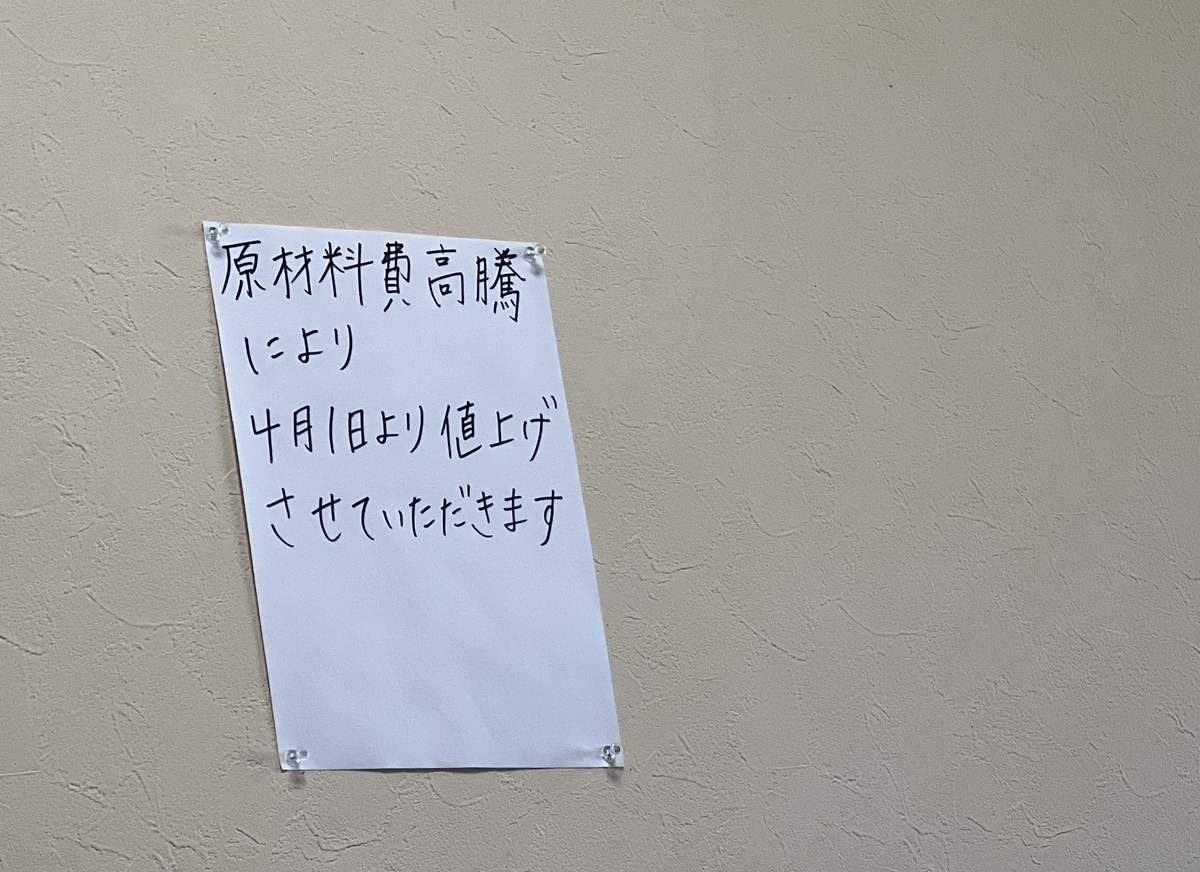 原材料費高騰
により
4月1日より値上げ
させていただきます